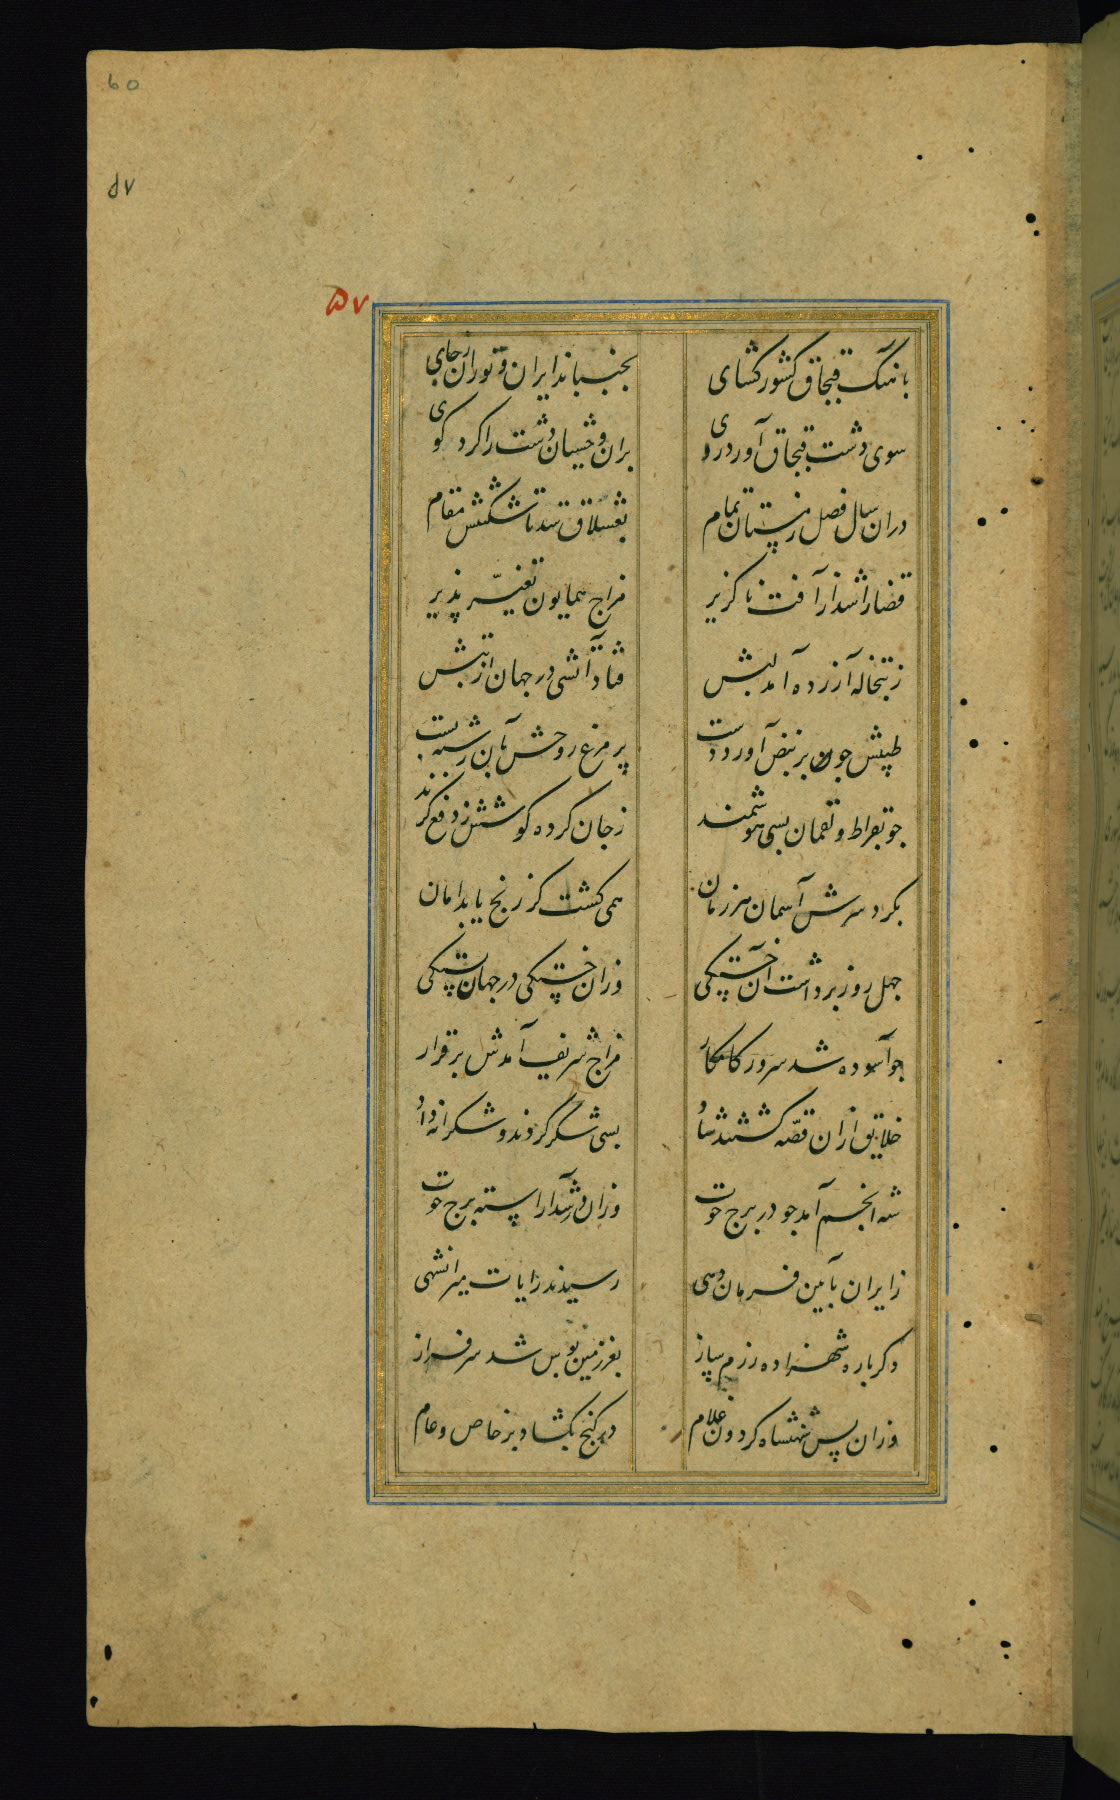 60
۵۷
۵۷
بآهنگ قبچاق کشورکشای بجنباند ایران و توران ز جای
سوی دشت قبچاق آورد روی بران وحشیان دشت را کرد کوی
دران سال فصل زمستان تمام بقشلاق شد تاشکنتش مقام
قضا را شد از آفت ناکزیر مزاج همایون تغیّر پذیر
ز تبخاله آزرده آمد لبش فتاد آتشی در جهان از تبش
طپش جون بر نبض آورد دست پر مرغ روحش بآن رشته بست
جو بقراط و لقمان بسی هوشمند ز جان کرده کوشش ز دفع کزند
بکرد سرش آسمان هر زمان همی کشت کز رنج یابد امان
جهل روز برداشت آن خستکی وزان خستکی در جهان بستکی
جو آسوده شد سرور کامکار مزاج شریف آمدش برقرار
خلایق ازان قصّه کشتند شاد بسی شکر کردند و شکرانه داد
شه انجم آمد جو در برج حوت وزان در شد آراسته برج حوت
ز ایران بآیین فرمان دهی رسیدند رایات میرانشهی
دکرباره شهزاده رزم ساز بعز زمین بوس شد سرفراز
وزان پس شهنشاه کردون غلام در کنج بکشاد بر خاص و عام